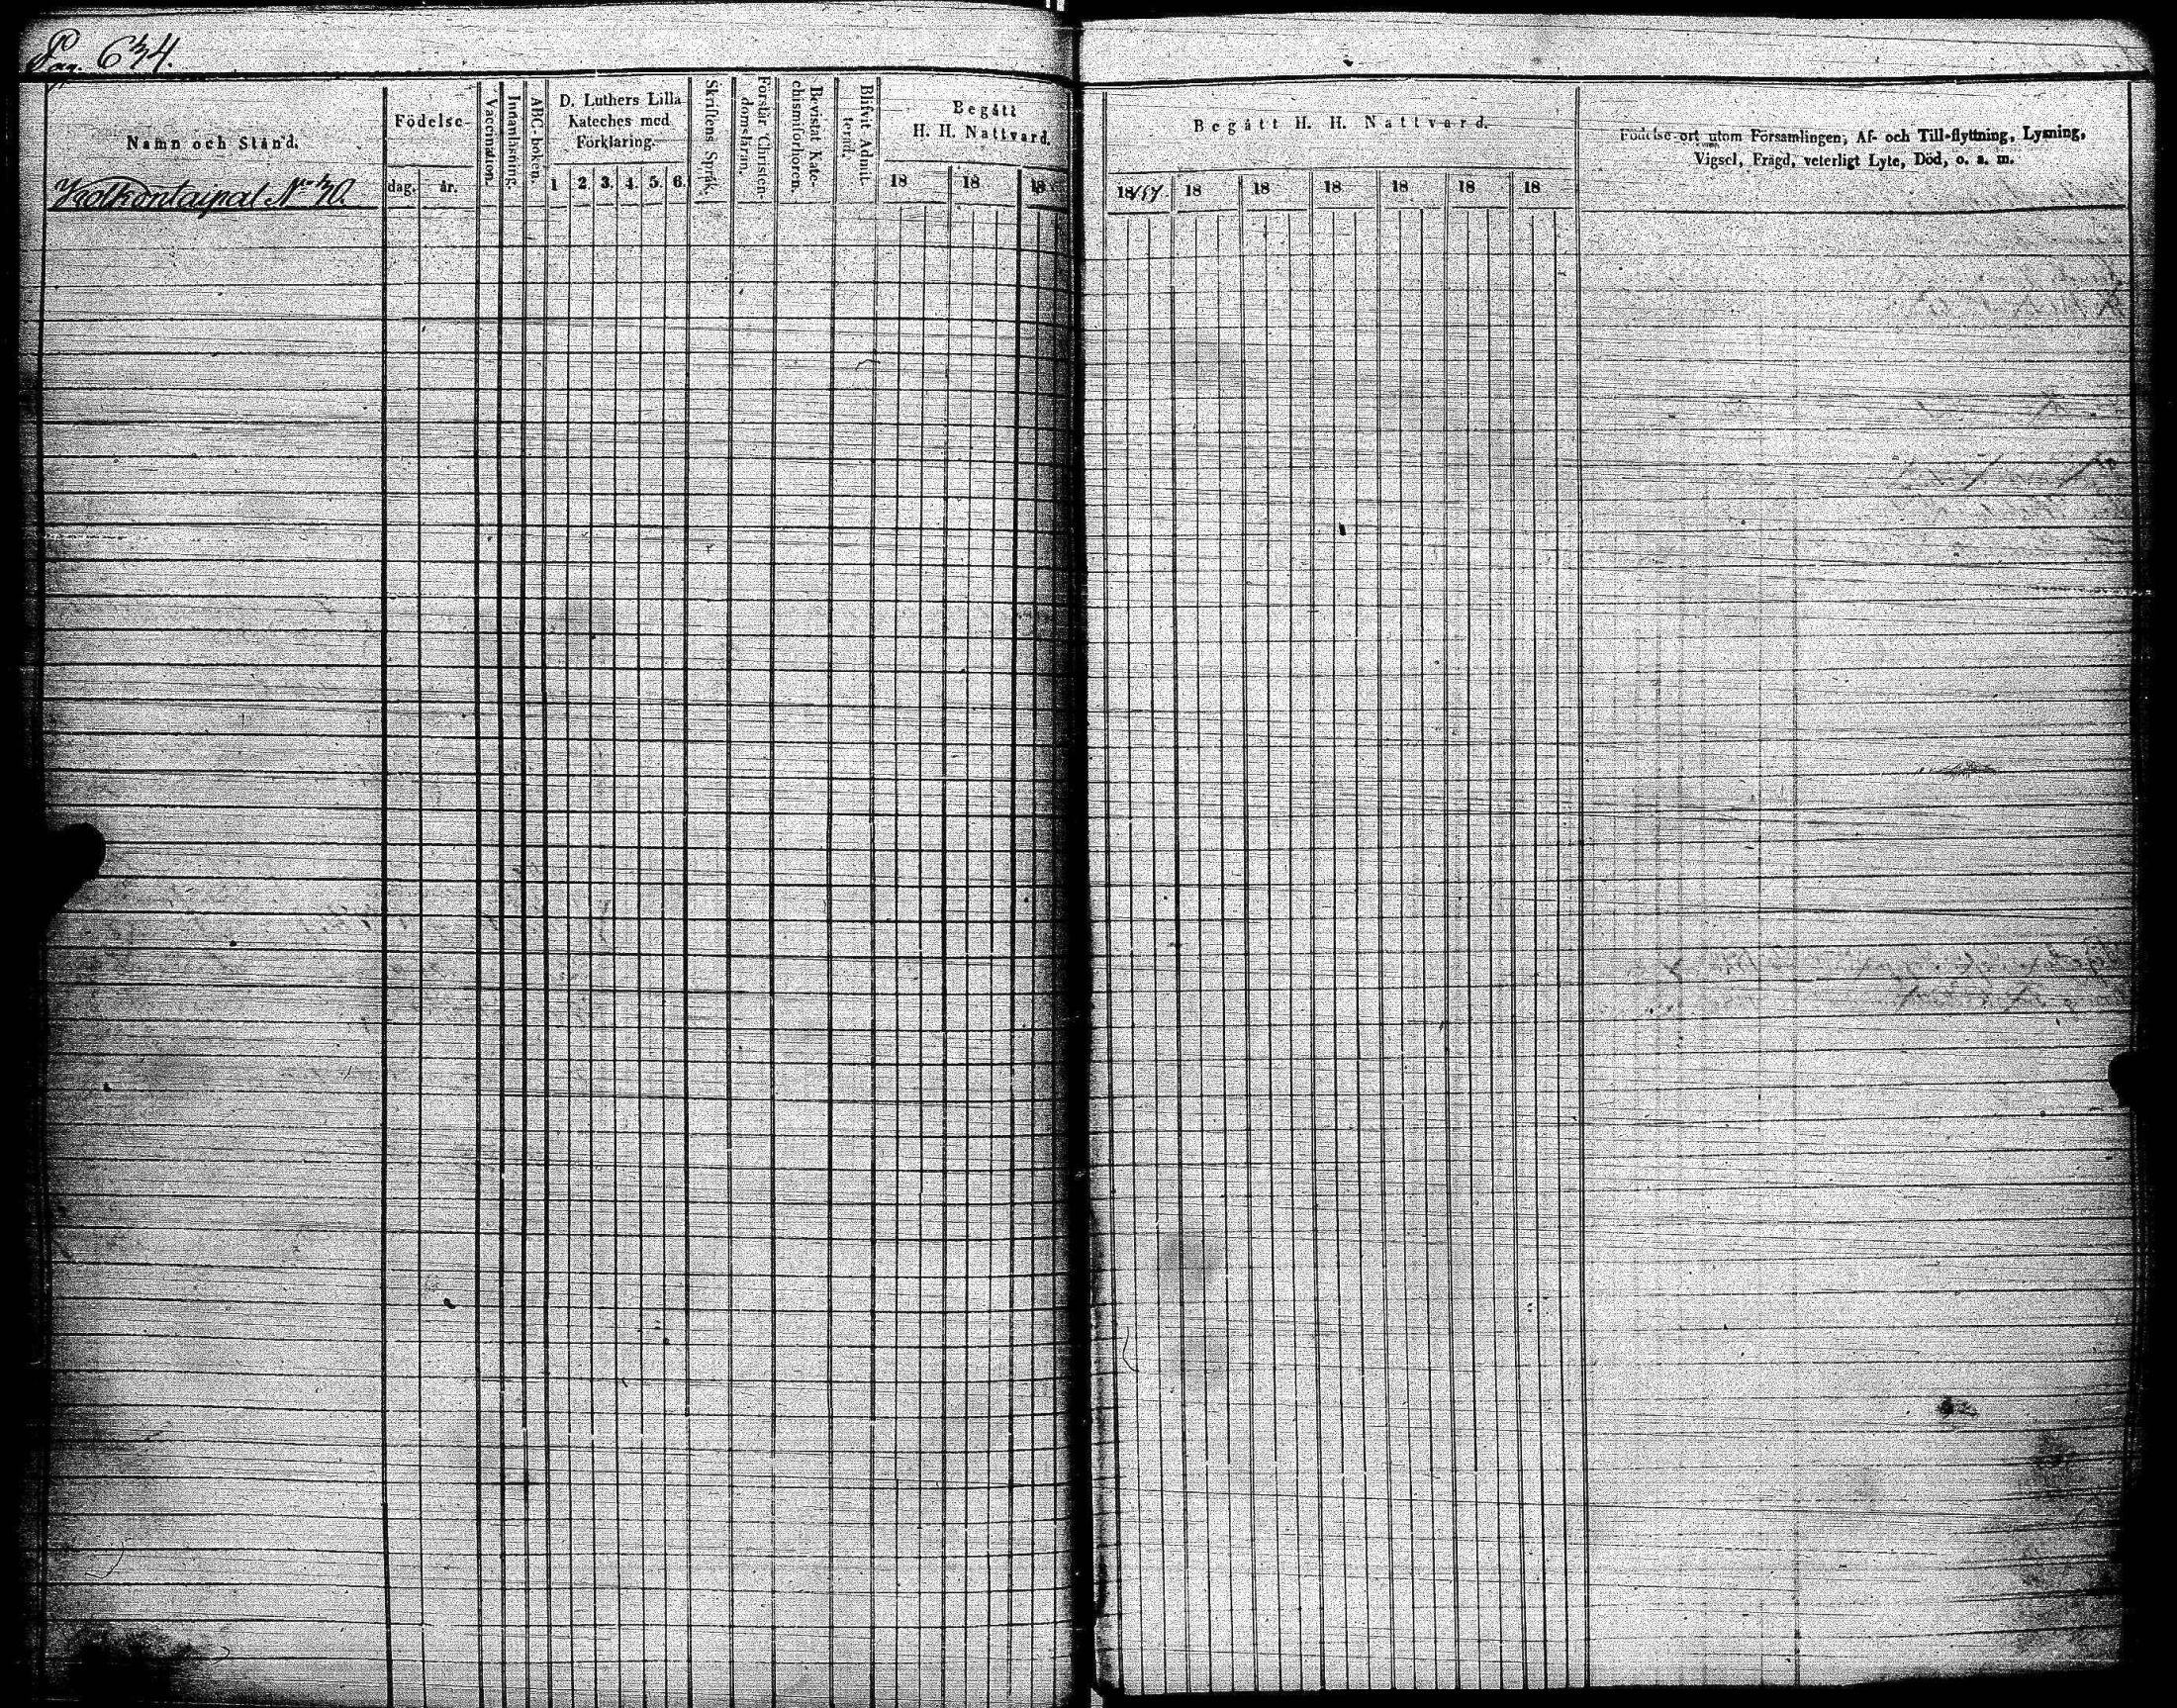 Pag. 634.
Namn och Stånd.
Kolkontaipal No 30.
Födelse-
dag. år.
Vaccination.
Innanläsning.
ABC-boken.
D. Luthers Lilla
Kateches med
Förklaring.
1 2. 3. 4. 5. 6.
Skriftens Språk.
Förstår Christen-
domsläran.
Bevistat Kate-
chismiförhören.
Blifvit Admit-
terad.
Begått
H. H. Nattvard.
18 18 18
Begått H. H. Nattvard.
18 18 18 18 18 18 18
Födelse-ort utom Församlingen, Af- och Till-flyttning, Lysning,
Vigsel, Frägd, veterligt Lyte, Död, o. s. m.